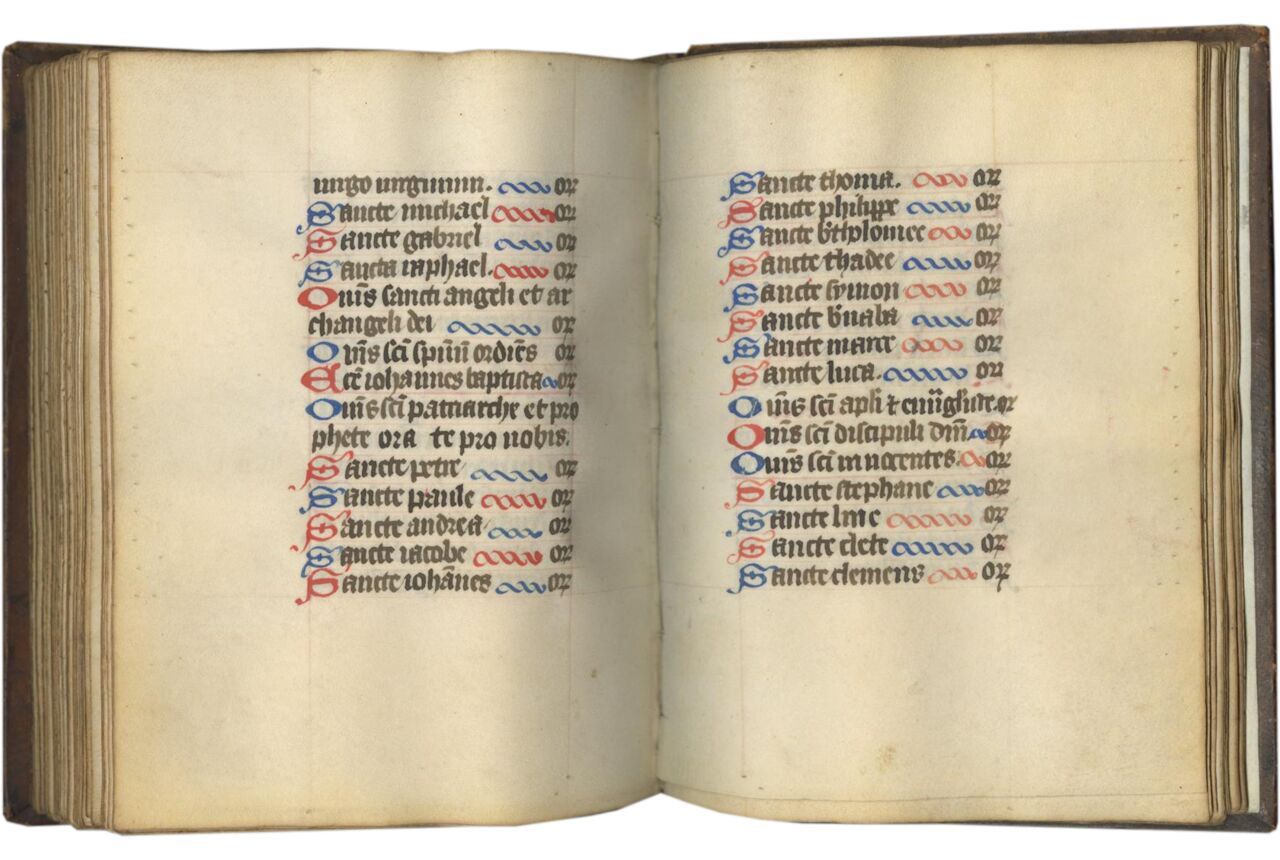 uirgo uirginum. or
Sancte michael or
Sancte gabriel or
Sancta raphael. or
Om̄s sancti angeli et ar
changeli dei or
Om̄s sc̄i spūū ordiēs or
Sc̄e iohannes baptista or
Om̄s sc̄i patriarche et pro
phete ora te pro nobis.
Sancte petre or
Sancte paule or
Sancte andrea or
Sancte iacobe or
Sancte iohānes or
Sancte thoma. or
Sancte philippe or
Sancte b̄tholomee or
Sancte thadee or
Sancte symon or
Sancte b̄naba or
Sancte marce or
Sancte luca. or
Om̄s sc̄i apl̄i et or
Om̄s sc̄i discipuli dn̄i or
Om̄s sc̄i innocentes. or
Sancte stephane or
Sancte line or
Sancte clete or
Sancte clemens or